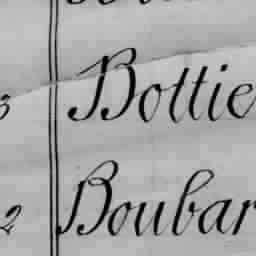 3 Bottie
2 Boubar